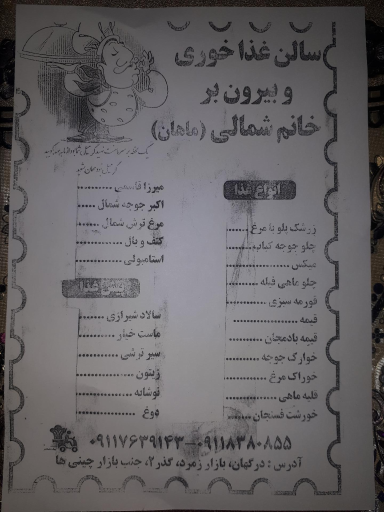 سالن غذا خوری
و بیرون بر
خانم شمالی (ماهان)
انواع غذا
زرشک پلو با مرغ
چلو جوجه کباب
میکس
چلو ماهی قبله
قورمه سبزی
قیمه
قیمه بادمجان
خوارک جوجه
خوراک مرغ
قلیه ماهی
خورشت فسنجان
میرزا قاسمی
اکبر جوجه شمال
مرغ ترش شمال
کتف و بال
استامبولی
غذا
سالاد شیرازی
ماست خیار
سیر ترشی
زیتون
نوشابه
دوغ
۰۹۱۱۷۶۳۹۱۴۳-۰۹۱۱۸۳۸۰۸۵۵
آدرس : درگهان، بازار زمرد، گذر۲، جنب بازار چینی ها